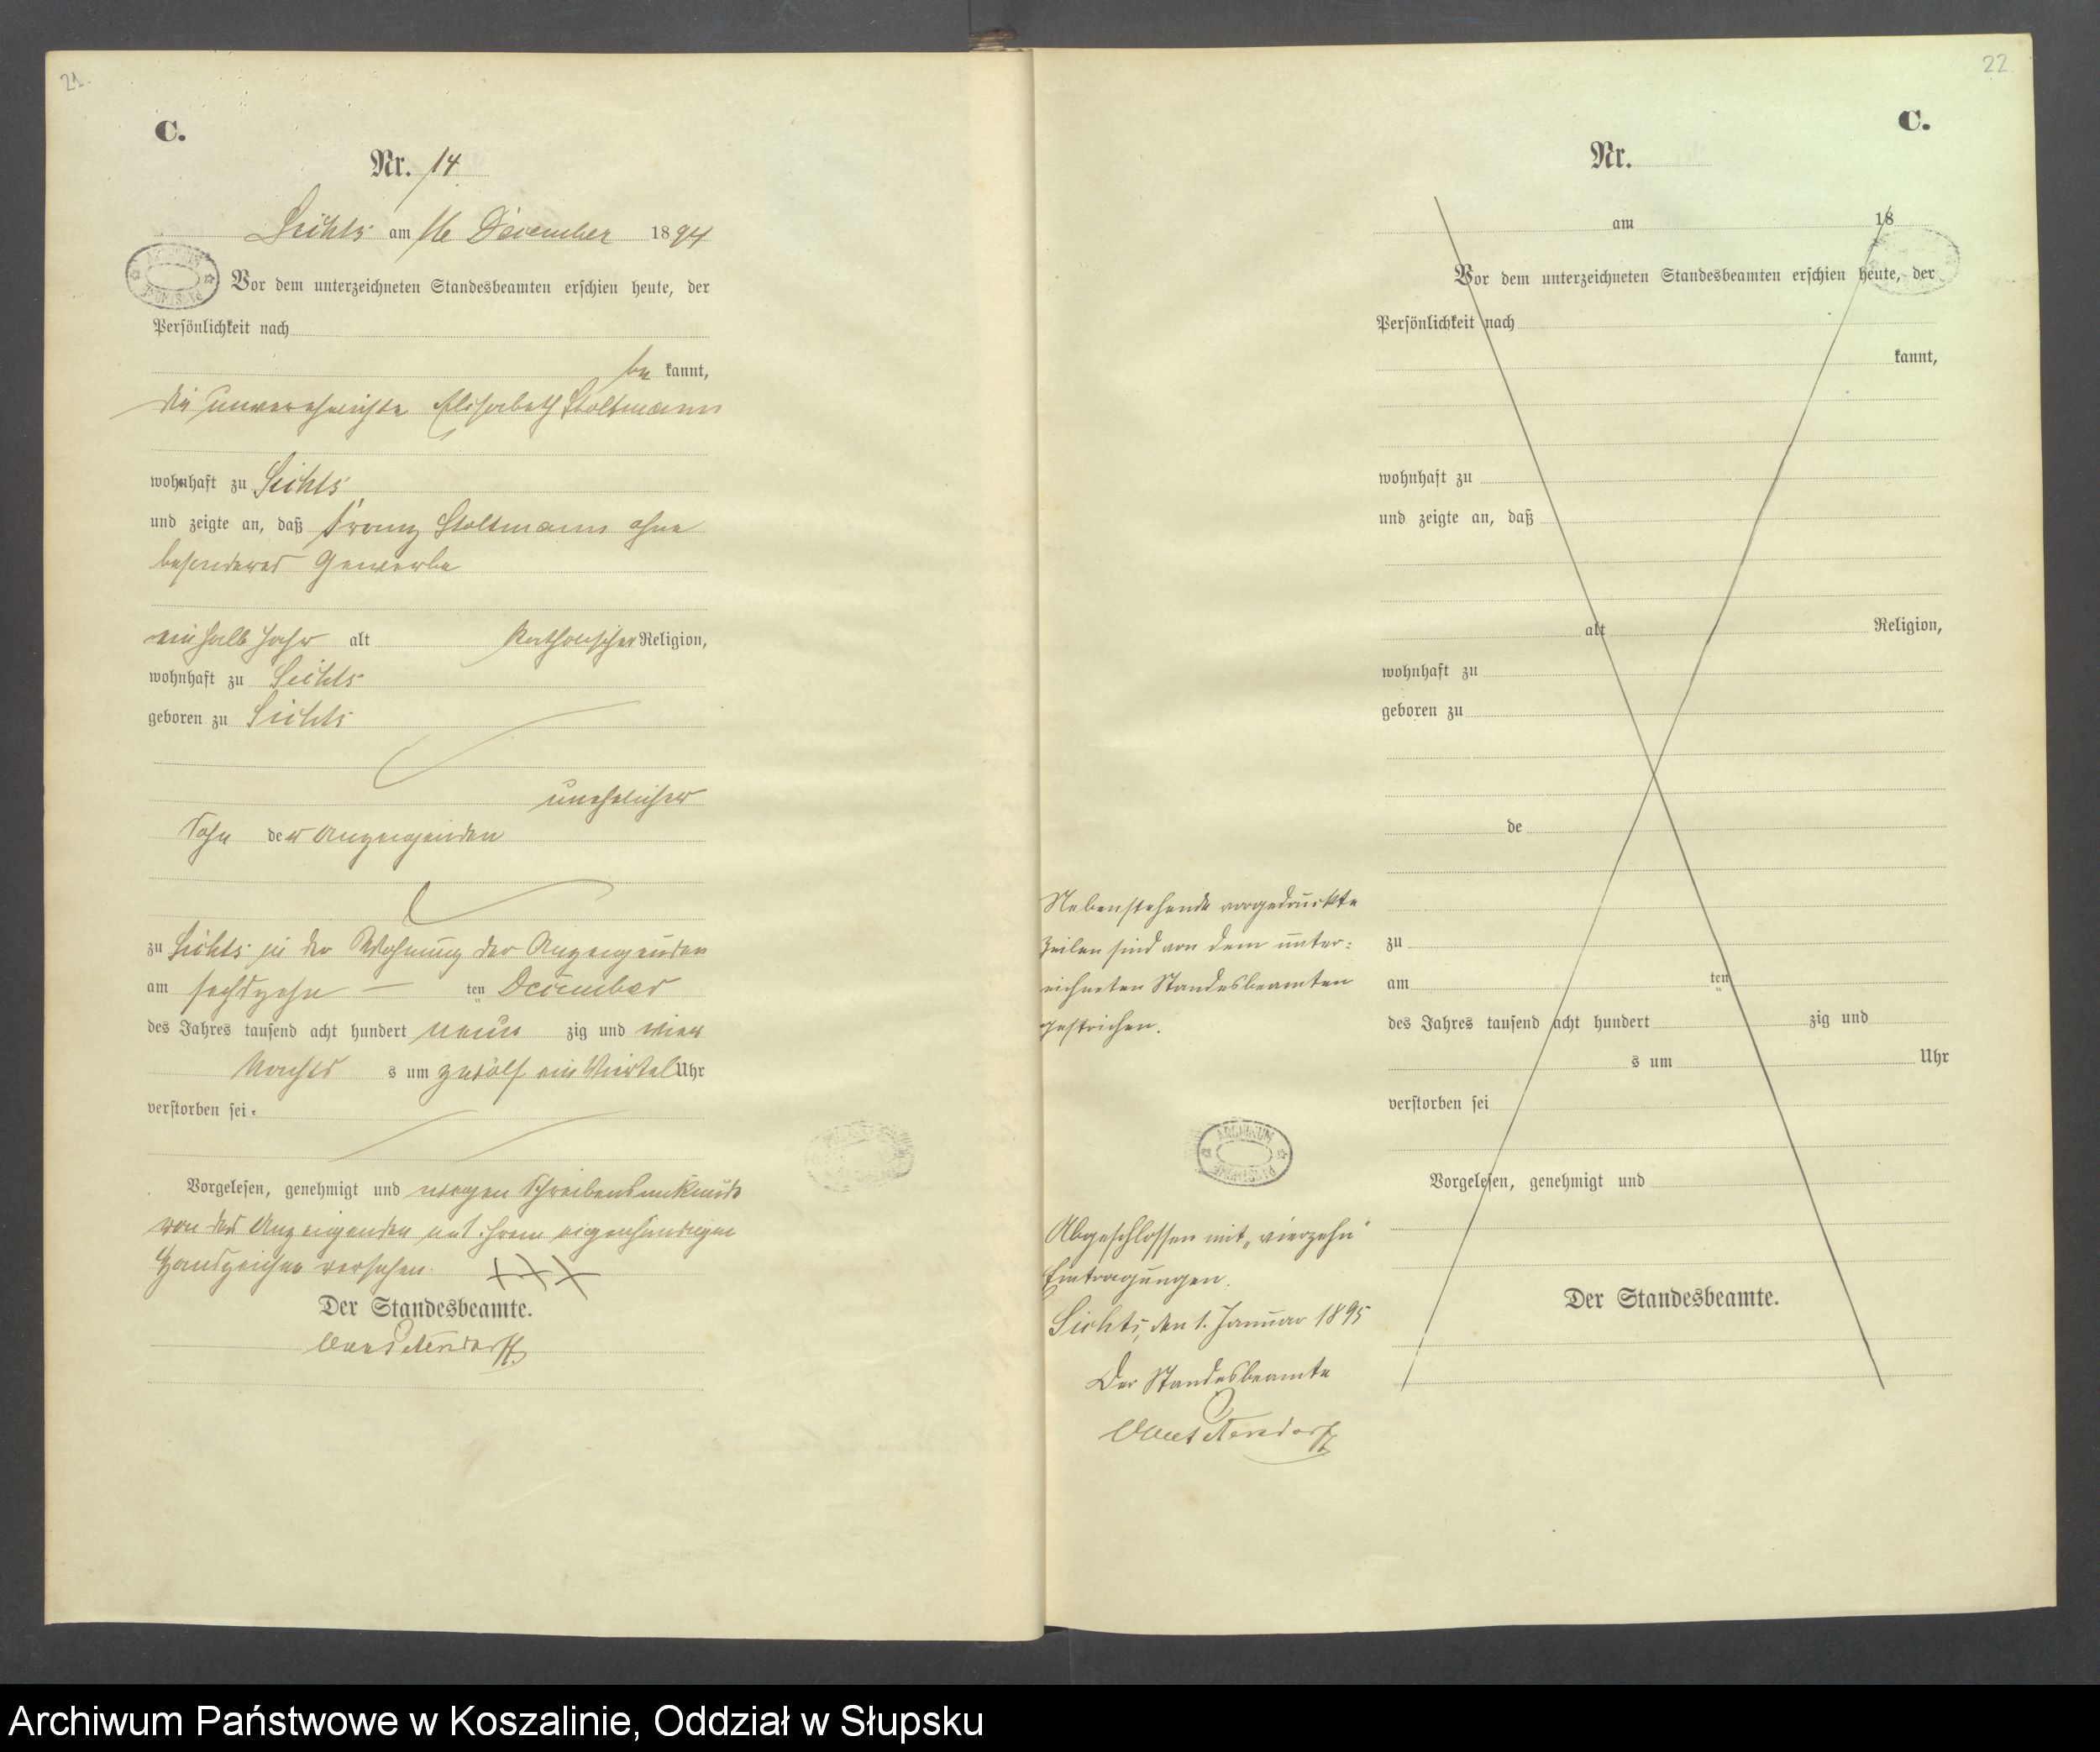 21.
C.
Nr. 14
Sichts am 16 December 1894
Vor dem unterzeichneten Standesbeamten erschien heute, der
Persönlichkeit nach
be kannt,
die unverehelichte Elisabeth Stoltmann
wohnhaft zu Sichts
und zeigte an, daß Franz Stoltmann ohne
besonderes Gewerbe
ein halb Jahr alt katholischer Religion,
wohnhaft zu Sichts
geboren zu Sichts
unehelicher
Sohn der Anzeigenden
zu Sichts in der Wohnung der Anzeigenden
am sechszehn ten December
des Jahres tausend acht hundert neun zig und vier
Nachts s um zwölf ein Viertel Uhr
verstorben sei.
Vorgelesen, genehmigt und wegen Schreibensunkunde
von der Anzeigenden mit ihrem eigenhändigen
Handzeichen versehen. +++
Der Standesbeamte.
22
C.
Nr.
am 18
Vor dem unterzeichneten Standesbeamten erschien heute, der
Persönlichkeit nach
kannt,
wohnhaft zu
und zeigte an, daß
alt Religion,
wohnhaft zu
geboren zu
de
zu
am ten
des Jahres tausend acht hundert zig und
s um Uhr
verstorben sei
Vorgelesen, genehmigt und
Der Standesbeamte.
Nebenstehende vorgedruckte
Zeilen sind von dem unter=
zeichneten Standesbeamten
gestrichen.
ARCHIWUM PAŃSTWOWE
Abgeschlossen mit „vierzehn“
Eintragungen.
Sichts, den 1. Januar 1895
Der Standesbeamte
Archiwum Państwowe w Koszalinie, Oddział w Słupsku